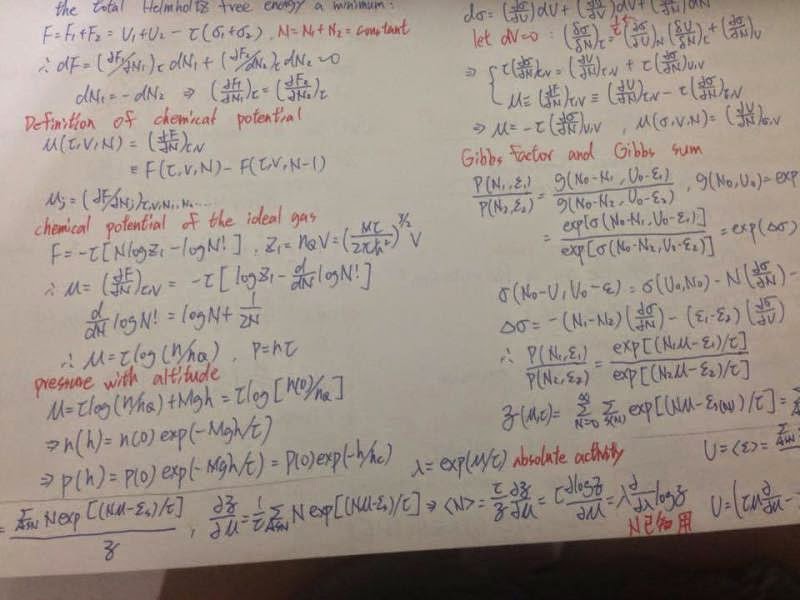 the total Helmholtz free energy a minimum:
F = F₁+F₂ = U₁+U₂ - τ(σ₁+σ₂), N = N₁+N₂ = constant
∴ dF = (∂F₁/∂N₁)τ dN₁ + (∂F₂/∂N₂)τ dN₂ = 0
dN₁ = -dN₂ ⇒ (∂F₁/∂N₁)τ = (∂F₂/∂N₂)τ
Definition of chemical potential
μ(τ,V,N) = (∂F/∂N)τ,V
≡ F(τ,V,N) - F(τ,V,N-1)
μⱼ = (∂F/∂Nⱼ)τ,V,N₁,N₂...
chemical potential of the ideal gas
F = -τ[N log Z₁ - log N!], Z₁ = nQV = (Mτ/2πħ²)^3/2 V
∴ μ = (∂F/∂N)τ,V = -τ[log Z₁ - d/dN log N!]
d/dN log N! = log N + 1/2N
∴ μ = τ log(n/nQ), p = nτ
pressure with altitude
μ = τ log(n/nQ) + Mgh = τ log[n(0)/nQ]
⇒ n(h) = n(0) exp(-Mgh/τ)
⇒ p(h) = p(0) exp(-Mgh/τ) = p(0) exp(-h/hc)
dσ = (∂σ/∂U)dU + (∂σ/∂V)dV + (∂σ/∂N)dN
let dV=0: (δσ/δN)τ = (∂σ/∂U)N (δU/δN)τ + (∂σ/∂N)U
1/τ
⇒ { τ(∂σ/∂N)τ,V = (∂U/∂N)τ,V + τ(∂σ/∂N)U,V
μ ≡ (∂F/∂N)τ,V ≡ (∂U/∂N)τ,V - τ(∂σ/∂N)τ,V
⇒ μ = -τ(∂σ/∂N)U,V , μ(σ,V,N) = (∂U/∂N)σ,V
Gibbs factor and Gibbs sum
P(N₁,ε₁)/P(N₂,ε₂) = g(N₀-N₁, U₀-ε₁)/g(N₀-N₂, U₀-ε₂) , g(N₀,U₀) = exp
= exp[σ(N₀-N₁,U₀-ε₁)]/exp[σ(N₀-N₂,U₀-ε₂)] = exp(Δσ)
σ(N₀-U, U₀-ε) = σ(U₀,N₀) - N(∂σ/∂N) -
Δσ = -(N₁-N₂)(∂σ/∂N) - (ε₁-ε₂)(∂σ/∂U)
∴ P(N₁,ε₁)/P(N₂,ε₂) = exp[(N₁μ-ε₁)/τ]/exp[(N₂μ-ε₂)/τ]
𝔷(μ,τ) = ∑N=0^∞ ∑s(N) exp[(Nμ-εs(N))/τ] = ∑
λ = exp(μ/τ) absolute activity
U = ⟨ε⟩ = ∑ASN
= ∑ASN N exp[(Nμ-εs)/τ]/𝔷 , ∂𝔷/∂μ = 1/τ ∑ASN N exp[(Nμ-εs)/τ] ⇒ ⟨N⟩ = τ/𝔷 ∂𝔷/∂μ = τ ∂log𝔷/∂μ = λ ∂/∂λ log𝔷
U = (τμ ∂/∂μ -
N已知用